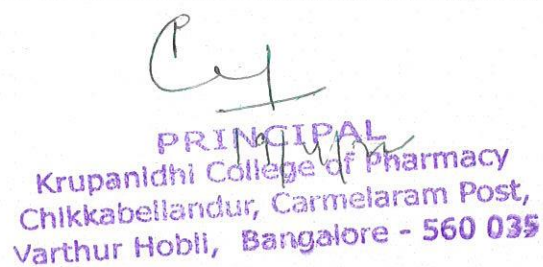 PRINCIPAL
19/4/22
Krupanidhi College of Pharmacy
Chikkabellandur, Carmelaram Post,
Varthur Hobli, Bangalore - 560 035